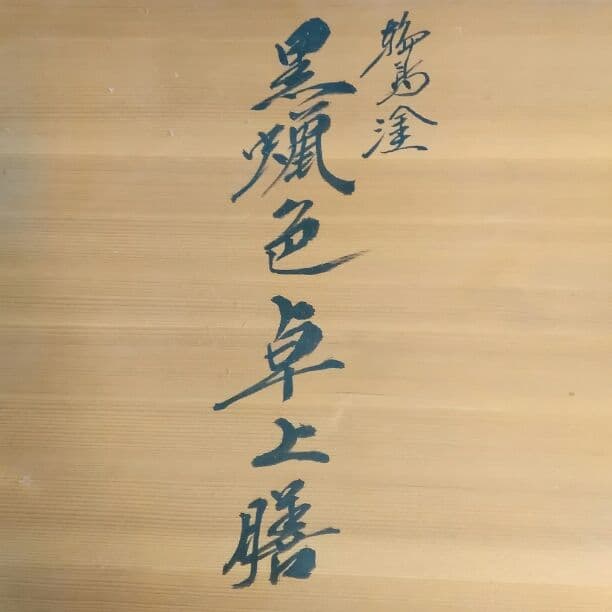 輪島塗
黒蝋色卓上膳